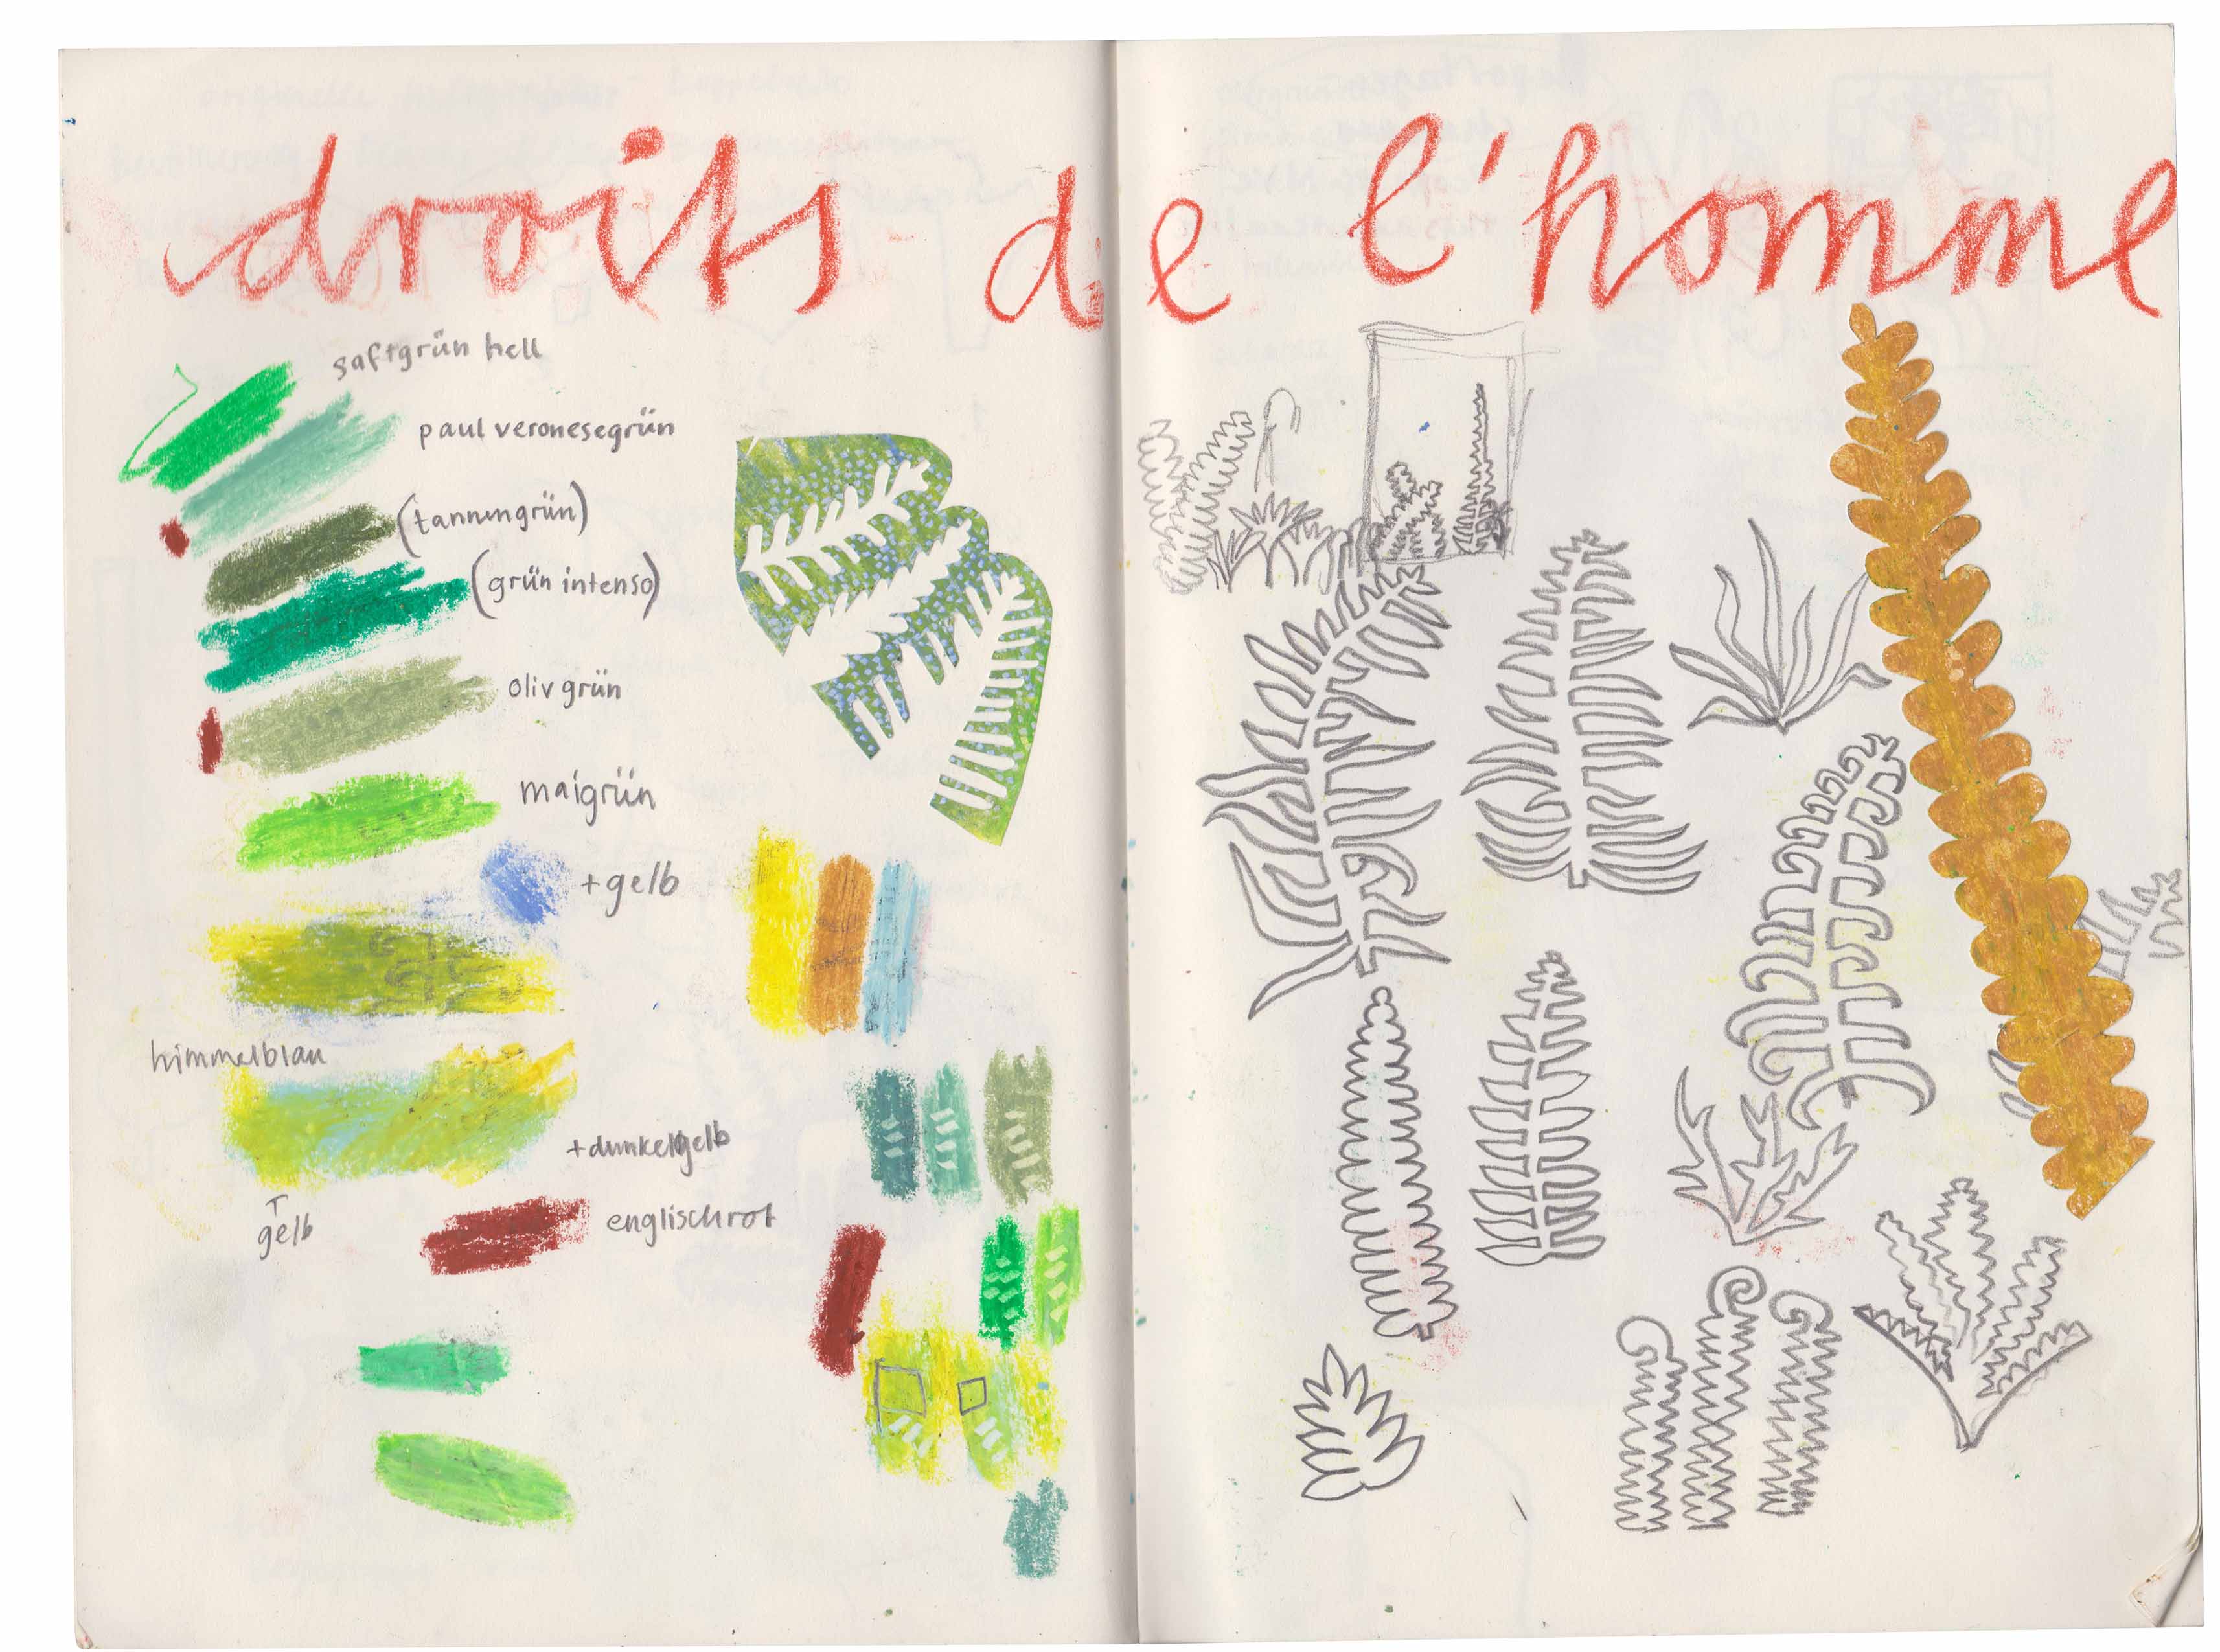 droits de l'homme
saftgrün hell
paul veronesegrün
(tannengrün)
(grün intenso)
olivgrün
maigrün
+gelb
himmelblau
+dunkelgelb
gelb
englischrot